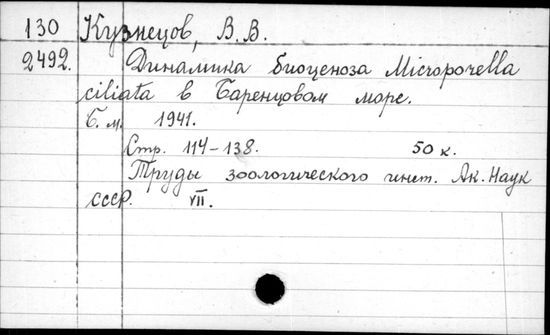 130 Кузнецов, В.В.
2492. Динамика биоценоза Microporella
ciliata в Баренцовом море.
Б.м. 1941.
Стр. 114-138. 50 к.
Труды зоологического инст. Ак. Наук
СССР. VII.